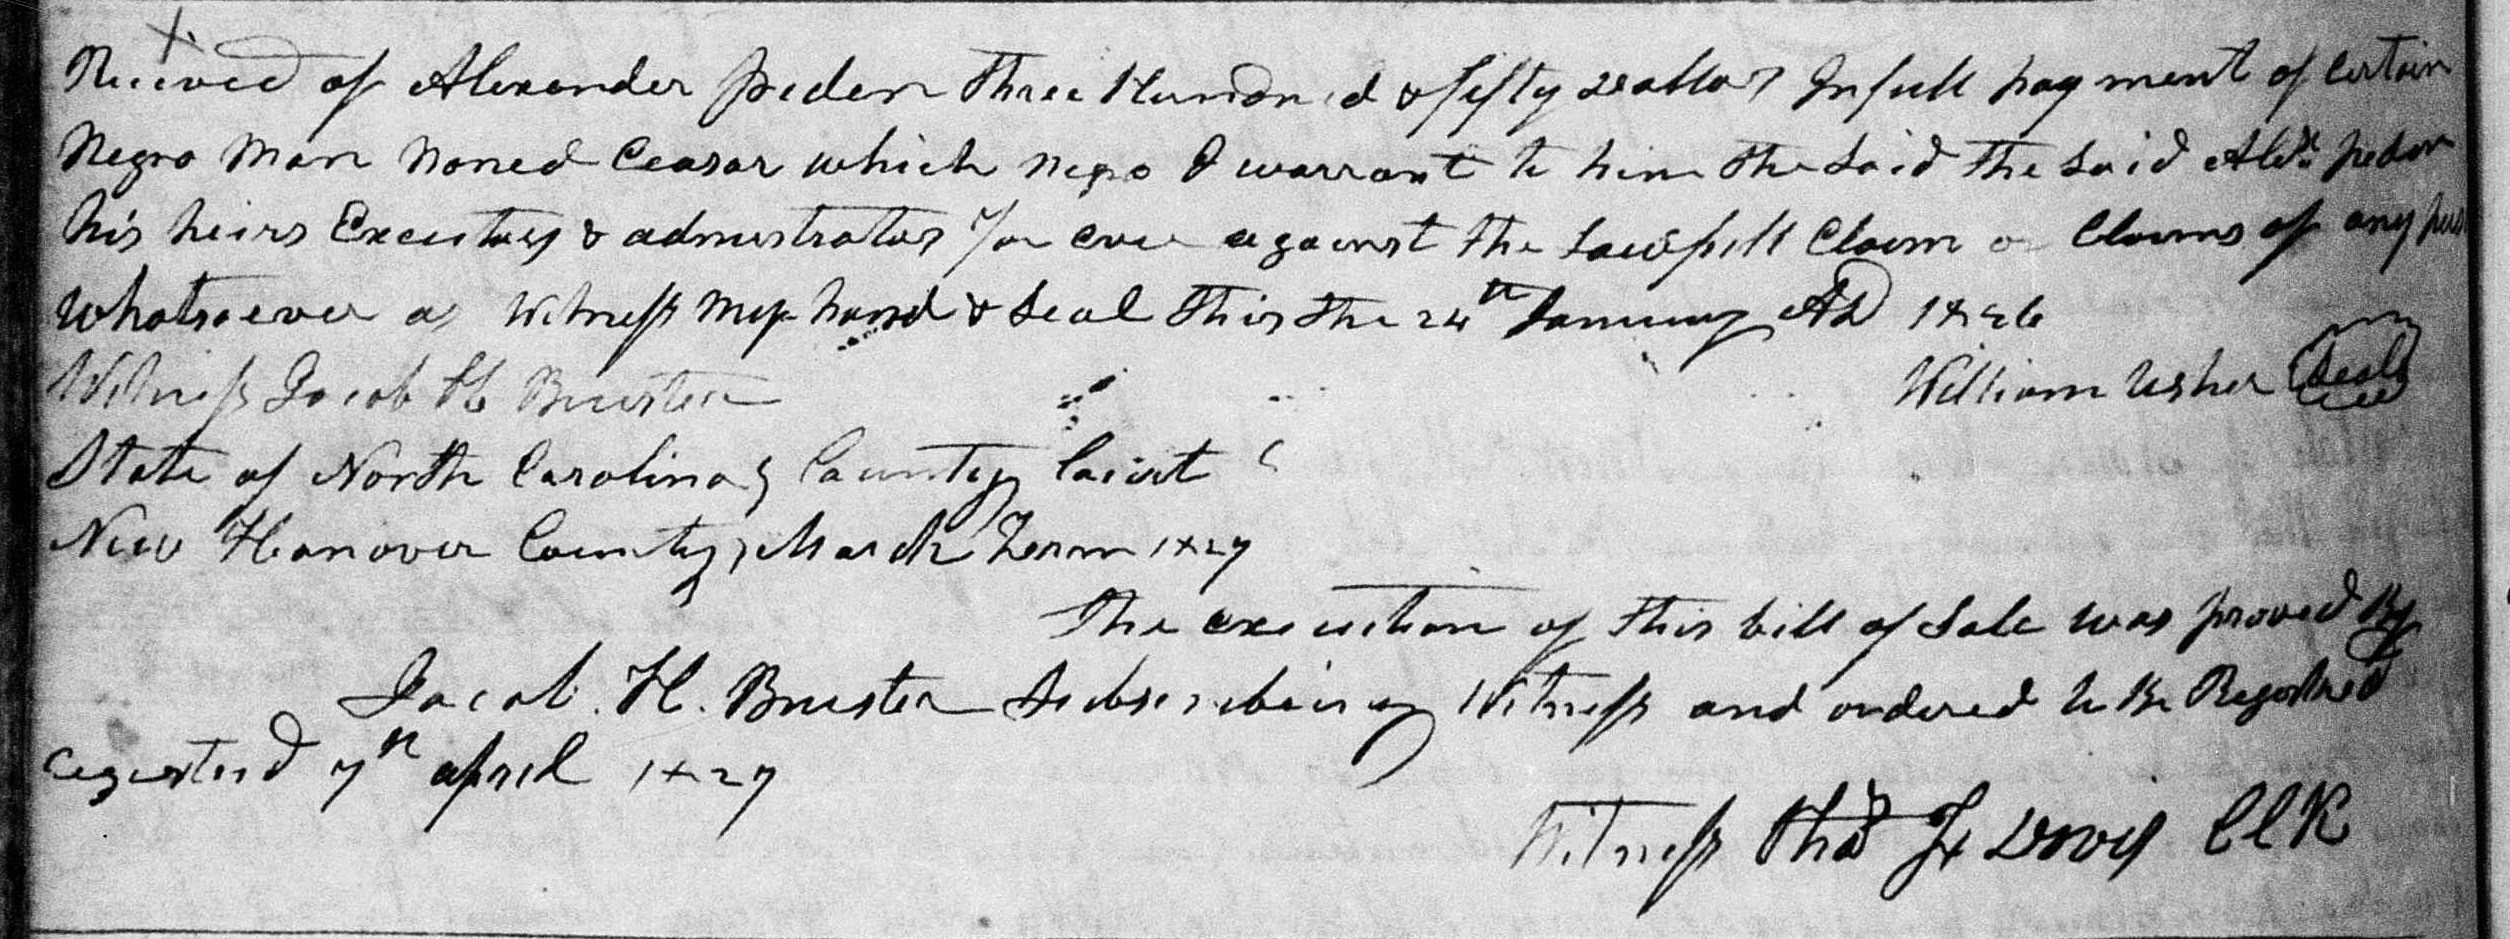 Received of Alexander peden Three Hundred & fifty Dollars Infull payment of Certain
Negro Man Named Ceasar which negro I warrant to him the said the said Alex peden
his heirs Executors & admnistrators for ever against the Lawfull Claim or Claims of any
Whatsoever as Witness my hand & Seal this the 24th January AD 1826
Witness Jacob H Bruster
William Usher Seal
State of North Carolina County Court
New Hanover County March Term 1827
The execution of this bill of Sale was proved By
Jacob. H. Bruster Subscribeing Witness and ordered to Be Registred
registerd 7th april 1827
Witness Thos F Davis Clk